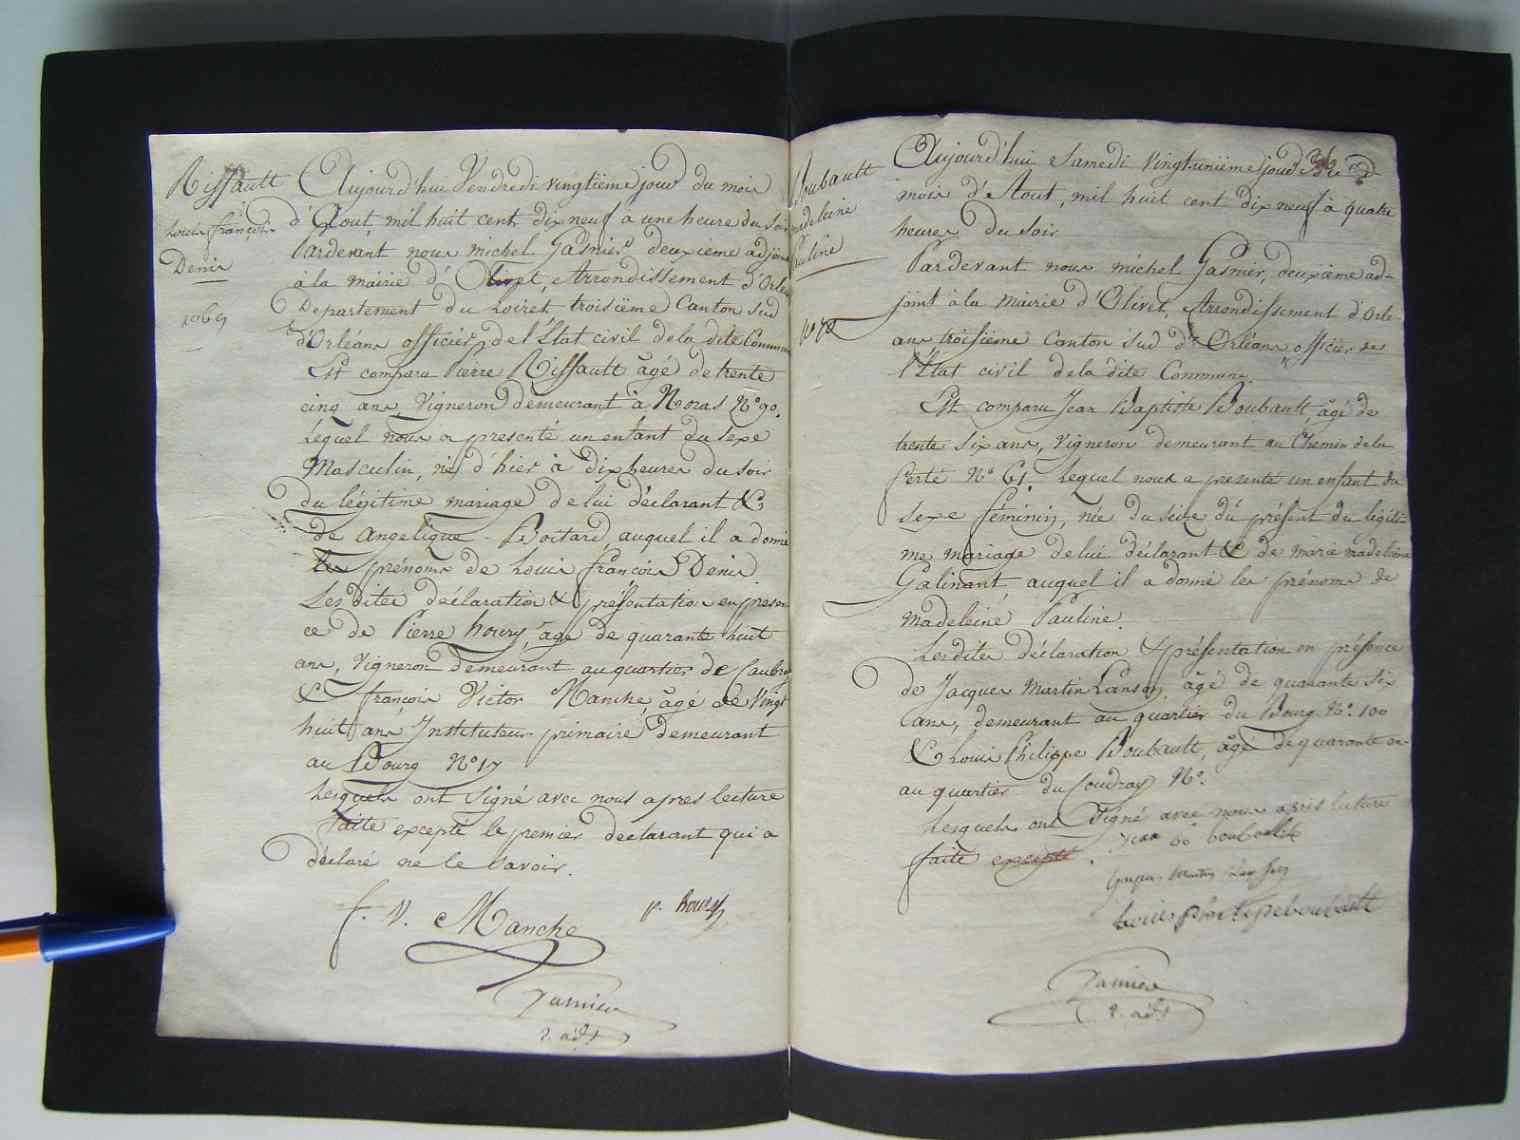 Riffault
Louis françois
Denis
n° 69
Aujourd'hui Vendredi vingtième jour du mois
d'Aout, mil huit cent dix neuf à une heure du soir
Pardevant nous michel Gasnier deuxieme adjoint
à la mairie d'Olivet, Arrondissement d'Orlé
Departement du Loiret troisième Canton sud
d'Orléans officier de l'Etat civil de la dite Commune
Est comparu Pierre Riffault âgé de trente
cinq ans, Vigneron demeurant à Noras N° 90.
Lequel nous a presenté un enfant du sexe
Masculin, né d'hier à dix heures du soir
du légitime mariage de lui déclarant &
de Angelique Poitard, auquel il a donné
les prénoms de Louis françois Denis
Les dites déclaration & présentation en presen
ce de Pierre houry, âgé de quarante huit
ans, Vigneron demeurant au quartier de Caubray
& françois Victor Manche, âgé de Vingt
huit ans Instituteur primaire demeurant
au Bourg N° 17
Lesquels ont signé avec nous apres lecture
faite excepté le premier declarant qui a
déclaré ne le savoir.
f. V. Manche
Gasnier
2. adjt
Boubault
madeleine
Pauline
n° 70
Aujourd'hui Samedi vingtunième jour du
mois d'Aout, mil huit cent dix neuf à quatre
heures du soir
Pardevant nous michel Gasnier, deuxième ad-
joint à la mairie d'Olivet, Arrondissement d'Orlé-
ans, troisième Canton sud d'Orléans, officier de
l'Etat civil de la dite Commune.
Est comparu Jean Baptiste Boubault, âgé de
trente six ans, Vigneron demeurant au Chemin de la
ferté N° 61. Lequel nous a presenté un enfant du
sexe féminin, née du seize du présent du légiti-
me mariage de lui déclarant & de marie madeleine
Galinant, auquel il a donné les prénoms de
Madeleine Pauline.
Lesdites déclaration & présentation en présence
de Jacques Martin Lanson, âgé de quarante six
ans, demeurant au quartier du Bourg N° 100
& Louis Philippe Boubault, âgé de quarante an-
au quartier du Coudray N°.
Lesquels ont signé avec nous après lecture
faite excepté.
Jean bt boubault
louis philipe boubault
Gasnier
2. adjt